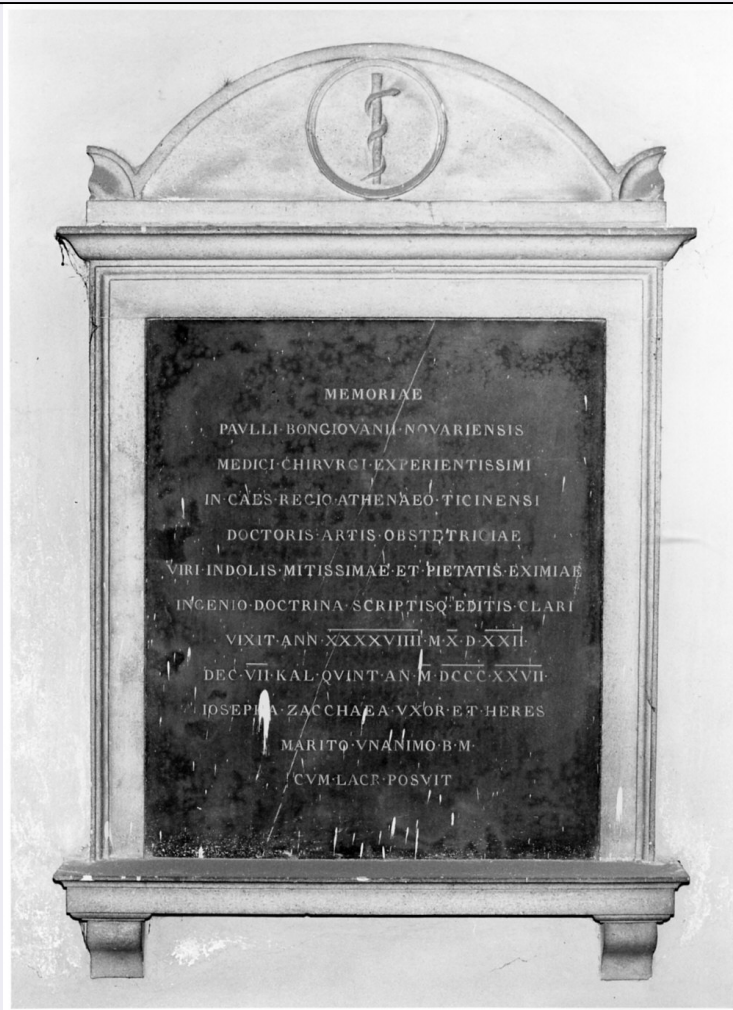 MEMORIAE
PAVLLI·BONGIOVANII·NOVARIENSIS
MEDICI·CHIRVRGI·EXPERIENTISSIMI
IN·CAES·REGIO·ATHENAEO·TICINENSI
DOCTORIS·ARTIS·OBSTETRICIAE
VIRI·INDOLIS·MITISSIMAE·ET·PIETATIS·EXIMIAE
INGENIO·DOCTRINA·SCRIPTISQ·EDITIS·CLARI
VIXIT·ANN·XXXXVIIII·M·X·D·XXII·
DEC·VII·KAL·QVINT·AN·M·DCCC·XXVII·
IOSEPHA·ZACCHAEA·VXOR·ET·HERES
MARITO·VNANIMO·B·M·
CVM·LACR·POSVIT